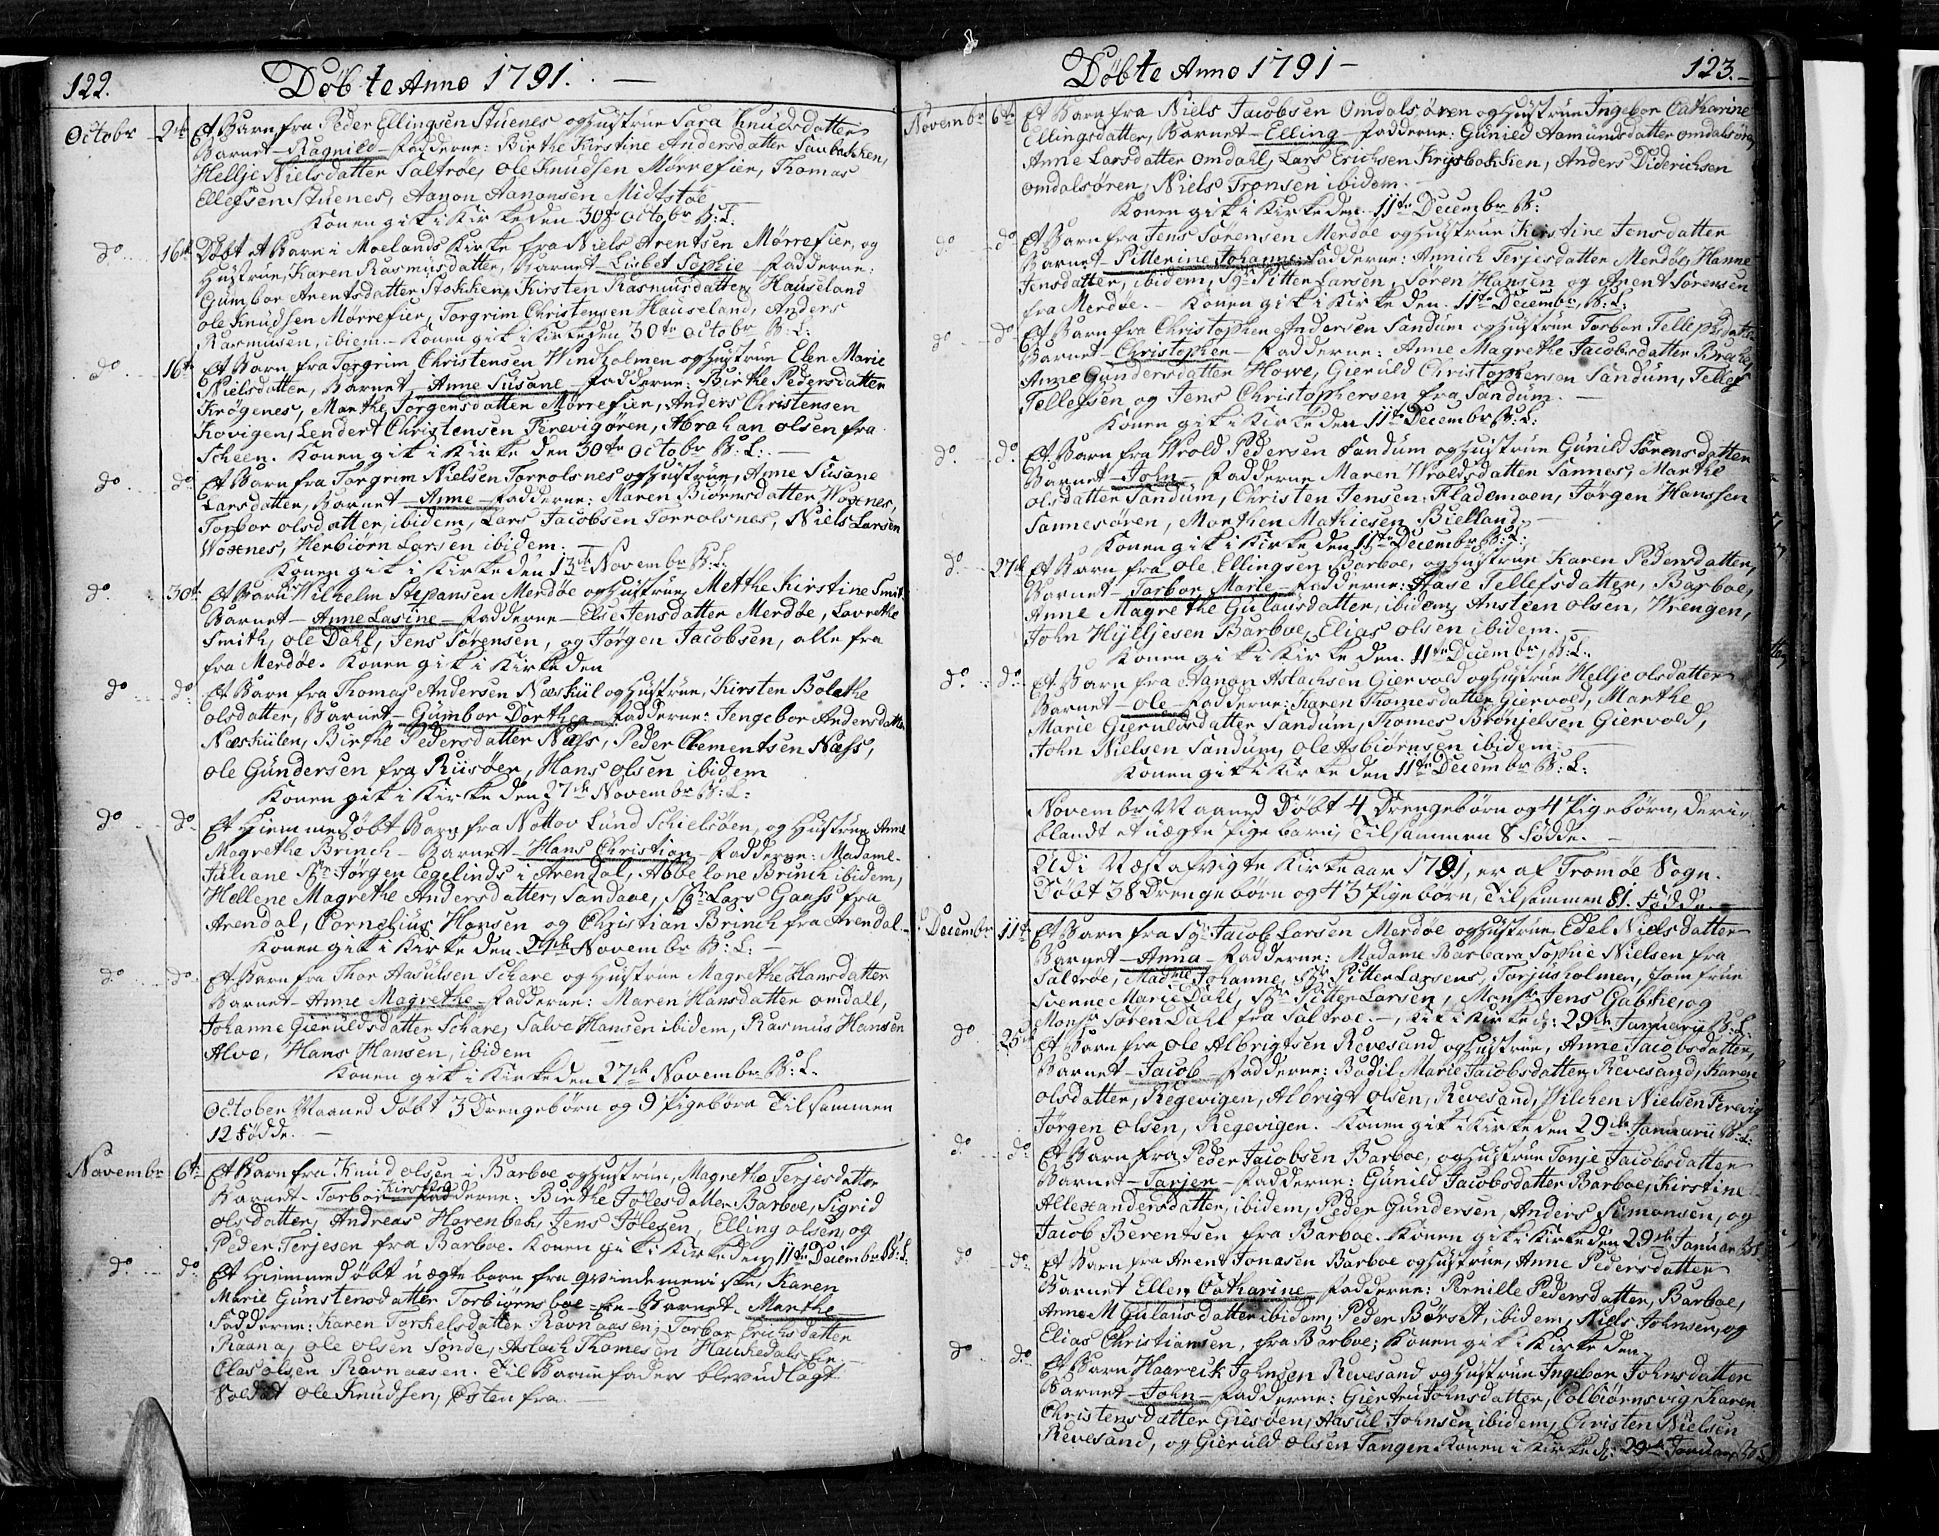 122. Döbte Anno 1791. —
Octobr 2den Et Barn fra Peder Ellingsen Stuenes og Hustrue Sara Knudsdatter
Barnet — Ragnild — Fadderne: Birthe Kirstine Andersdatter Saubakken,
Hellje Nielsdatter Saltröe, Ole Knudsen Mörrefier, Thomas
Ellefsen Stuenes, Aanon Aanonsen Midtstöe
Konen gik i Kirke den 30te Octobr B: L:
do 16te Döbt et Barn i Moelands Kirke fra Niels Arentsen Mörrefier, og
Hustrue, Karen Rasmusdatter, Barnet — Lisbet Sophie — Fadderne:
Gumbor Arentsdatter Stokken, Kirsten Rasmusdatter, Hauseland
Ole Knudsen Mörrefier, Torgrim Christensen Hauseland, Anders
Rasmusen, ibiem — Konen gik i Kirke den 30te Octobr B: L:
do 16te Et Barn fra Torgrim Christensen Windholmen og Hustrue Elen Marie
Nielsdatter, Barnet — Anne Susane — Fadderne: Birthe Pedersdatter
Krögenes, Marthe Jörgensdatter Mörrefier, Anders Christensen
Kovigen, Lendert Christensen Ferevigören, Abraham Olsen fra
Scheen. Konen gik i Kirke den 30te Octobr B: L: —
do do Et Barn fra Torgrim Nielsen Torrolsnes og Hustrue, Anne Susane
Larsdatter, Barnet — Anne — Fadderne: Maren Biörnsdatter Woxnes,
Torbor Olsdatter, ibidem, Lars Jacobsen Torrolsnes, Niels Larsen
Woxnes, Herbiörn Larsen ibidem. —
Konen gik i Kirke den 13de Novembr B: L:
do 30te Et Barn Wilhelm Stepansen Merdöe og Hustrue, Methe Kirstine Smit
Barnet — Anne Lasine — Fadderne — Else Jensdatter Merdöe, Lavrethe
Smith, Ole Dahl, Jens Sörensen, og Jörgen Jacobsen, alle fra
fra Merdöe. Konen gik i Kirke den
do do Et Barn fra Thomas Andersen Næskiil og Hustrue, Kirsten Bolethe
Olsdatter, Barnet — Gumbor Dorthea — Fadderne: Jengebor Andersdatter
Næskiilen, Birthe Pedersdatter Næss, Peder Clementsen Næss,
Ole Gundersen fra Riisöer, Hans Olsen ibidem
Konen gik i Kirke den 27de Novembr B: L:
do do Et Hiemmedöbt Barn fra Nottov Lund Schielsöen, og Hustrue Anne
Magrethe Brinch — Barnet — Hans Christian — Fadderne: Madame
Juliane Sr Jörgen Eegelinds i Arendal, Abbelone Brinch ibidem,
Hellene Magrethe Andersdatter, Sandaae, Sr Lars Gaass fra
Arendal, Cornelius Hansen og Christian Brinch fra Arendal —
Konen gik i Kirke den 27de Novembr B: L: —
do do Et Barn fra Thor Aasulsen Schare og Hustrue Magrethe Hansdatter
Barnet — Anne Magrethe — Fadderne: Maren Hansdatter Omdall,
Johanne Gieruldsdatter Schare, Salve Hansen ibidem, Rasmus Hansen
Alve, Hans Hansen, ibidem
Konen gik i Kirke den 27de Novembr B: L:
October Maaned Döbt 3 Drengebörn og 9 Pigebörn Tilsammen
12 Födde. —
Novembr 6te Et Barn fra Knud Olsen i Barboe og Hustrue, Magrethe Terjesdatter
Barnet — Torbor Kirstine Fadderne: Birthe Jölesdatter Barboe, Sigrid
Olsdatter, Andreas Harenbak, Jens Jölesen, Elling Olsen, og
Peder Terjesen fra Barboe. Konen gik i Kirke den 11te Decembr B: L:
do do Et Hiemmedöbt uægte barn fra qvindemeniske, Karen
Marie Gunstensdatter Torbiörnsboe — Barnet — Marthe —
Fadderne: Karen Torkelsdatter Ravnaasen, Torbor Erichsdatter
Raana, Ole Olsen Sonde, Aslach Thomesen Haukedals
Clas Olsen Ravnaasen. Til Barnefader blev udlagt
Soldat Ole Knudsen, Östen fra —
Döbte Anno 1791 — 123. —
Novembr 6te Et Barn fra Niels Jacobsen Omdalsören og Hustrue Ingebor Catharine
Ellingsdatter, Barnet — Elling — Fadderne: Gunild Aamundsdatter Omdalsören,
Anne Larsdatter Omdahl, Lars Erichsen Krysbakken, Anders Diderichsen
Omdalsören, Niels Tronsen ibidem. —
Konen gik i Kirke den 11te Decembr B:
do do Et Barn fra Jens Sörensen Merdöe og Hustrue Kirstine Jensdatter
Barnet — Pitterine Johanne Fadderne: Annich Terjesdatter Merdöe, Hanne
Jensdatter, ibidem, Sr Pitter Larsen, Sören Hansen og Arent Sörensen
fra Merdöe. — Konen gik i Kirke den 11te Decembr B: L:
do do Et Barn fra Christopher Andersen Sandum og Hustrue Torbor Tellefsdatter
Barnet — Christopher — Fadderne: Anne Magrethe Jacobsdatter Brække,
Anne Gundersdatter Howe, Gieruld Christophersen Sandum, Tellef
Tellefsen og Jens Christophersen fra Sandum. —
Konen gik i Kirke den 11te Decembr B: L:
do do Et Barn fra Wrold Pedersen Sandum og Hustrue Gunild Sörensdatter
Barnet — John — Fadderne Maren Wroldsdatter Sannes, Marthe
Olsdatter Sandum, Christen Jensen Flademoen, Jörgen Hanssen
Sannesören, Morthen Mathiesen Bielland, —
Konen gik i Kirke den 11te Decembr B: L:
do 27de Et Barn fra Ole Ellingsen Barboe, og Hustrue Karen Pedersdatter,
Barnet — Torbor Marie — Fadderne: Aase Tellefsdatter, Barboe,
Anne Magrethe Gulausdatter, ibidem, Ansteen Olsen, Wrengen,
John Hylljesen Barboe, Elias Olsen ibidem. —
Konen gik i Kirke den 11te Decembr B: L:
do do Et Barn fra Aanon Aslachsen Giervold og Hustrue Hellje Olsdatter
Barnet — Ole — Fadderne: Karen Thomesdatter Giervold, Marthe
Marie Gieruldsdatter Sandum, Thomes Brönjelsen Giervold,
John Nielsen Sandum, Ole Asbiörnsen ibidem. —
Konen gik i Kirke den 11te Decembr B: L:
Novembr Maaned Döbt 4 Drengebörn og 4 Pigebörn, deri-
blandt et uægte pige barn, Tilsammen 8 Födde. —
Udi Næstafvigte Kirke aar 1791, er af Tromöe Sogn
Döbt 38 Drengebörn og 43 Pigebörn, Tilsammen 81. Födde. —
Decembr 11te Et Barn fra Sr Jacob Larsen Merdöe og Hustrue, Edel Nielsdatter
Barnet — Anna — Fadderne: Madame Barbara Sophie Nielsen fra
Saltröe, Madme Johanne, Sr Pitter Larsens, Torjusholmen, Jomfrue
Svenne Marie Dahl, Sr Pitter Larsen, Monsr Jens Gabrie, og
Monsr Sören Dahl fra Saltröe. —, gik i Kirke d: 29de Januarii B: L:
do 25de Et Barn fra Ole Albrigtsen Revesand og Hustrue, Anne Jacobsdatter,
Barnet — Jacob — Fadderne: Bodil Marie Jacobsdatter Revesand, Karen
Olsdatter, Regevigen, Albrigt Olsen, Revesand, Wilchen Nielsen Ferevig
Jörgen Olsen, Regevigen. Konen gik i Kirke den 29de Januarii B: L:
do do Et Barn fra Peder Jacobsen Barboe, og Hustrue Tonje Jacobsdatter
Barnet — Tarjer — Fadderne: Gunild Jacobsdatter Barboe, Kirstine
Allexandersdatter, ibidem, Peder Gundersen, Anders Simonsen, og
Jacob Berentsen fra Barboe. Konen gik i Kirke den 29de Januar B:
do do Et Barn fra Arent Jonasen Barboe og Hustrue, Anne Pedersdatter
Barnet Ellen Catharine — Fadderne: Pernille Pedersdatter, Barboe,
Anne M Gulausdatter ibidem, Peder Börset, ibidem, Niels Johnsen, og
Elias Christiansen, fra Barboe; Konen gik i Kirke den
do do Et Barn Haareik Johnsen Revesand og Hustrue Ingebor Johnsdatter
Barnet — John — Fadderne: Giertru Johnsdatter, Colbiörnsvig, Karen
Christensdatter Giesöen, Aasul Johnsen, ibidem, Christen Nielsen
Revesand, og Gieruld Olsen Tangen Konen i Kirke d: 29de Januar B: L: